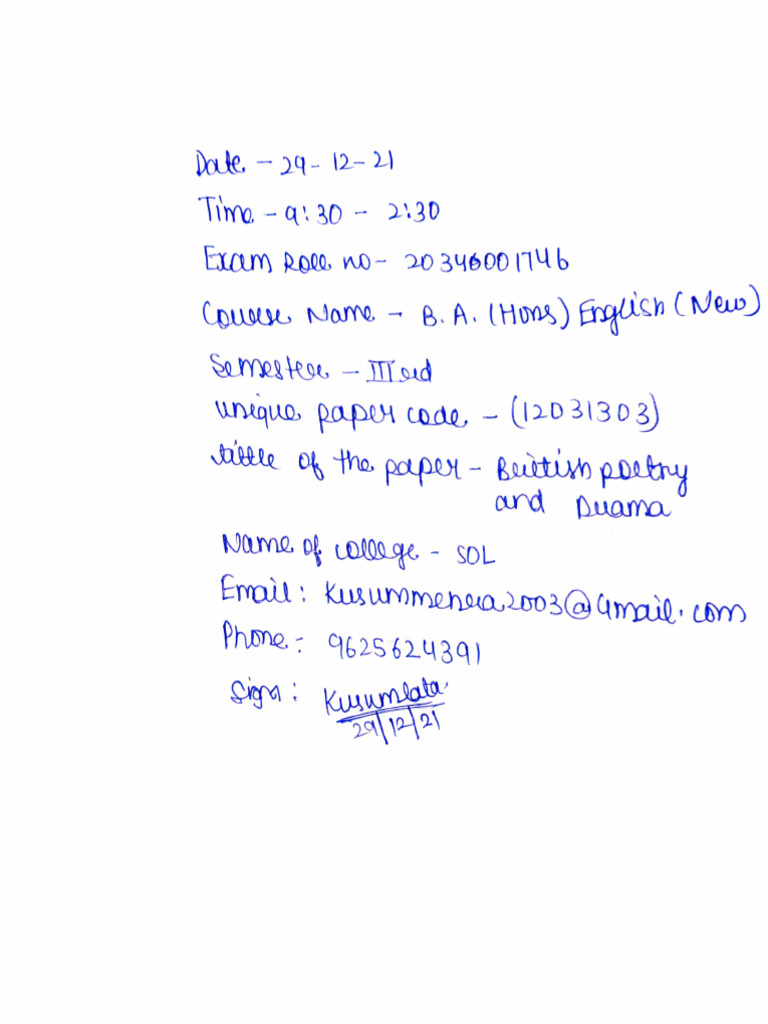 Date - 29-12-21
Time - 9:30 - 2:30
Exam Roll no - 20346001746
Course Name - B.A. (Hons) English (New)
Semester - III rd
unique paper code - (12031303)
tittle of the paper - British poetry
and Drama
Name of college - SOL
Email: Kusummenera2003@Gmail.com
Phone:- 9625624391
Sign: Kusumlata
29/12/21